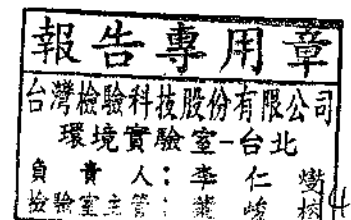 報告專用章
台灣檢驗科技股份有限公司
環境實驗室-台北
負責人：李仁燮
檢驗室主管：峻榕